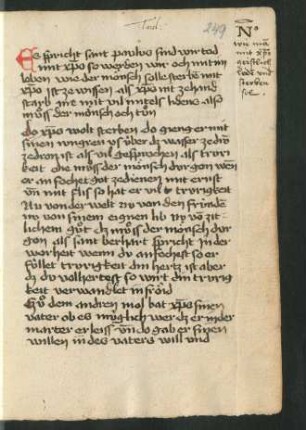 249
No
wie mā
mit xpo
geistlich
lebē und
sterben
sol
Es spricht sant paulus sind wir tod
mit xpo so werden wir och mit im
leben wie der mönsch sölle sterbē mit
xpo ist ze wissen als xpo nit zehand
starb me mit vil mitels lidens also
müss der mönsch och tūn
Do xpo wolt sterben do gieng er mit
sinen iungren us über dz wasser zedro
zedron ist als vil gesprochen als truri
keit die müss der mönsch durgon wen
er anfochet got zedienen mit ernst
vn mit flis so hat er vil trurikeit
Nu von der welt nu von den fründe
nu von sinem eignen lib nu vō zit
lichem gūt dz müss der mönsch dur
gon als sant berhart spricht in der
worheit wenn du anfochest so er
füllet trurikeit din hertz ist aber
dz du volhertest so wirt din trurig
keit verwandlet in fröid
Zū dem andren mol bat xps sinen
vater ob es müglich wer dz er in der
marter erliess vn do gab er sinen
willen in des vaters will und